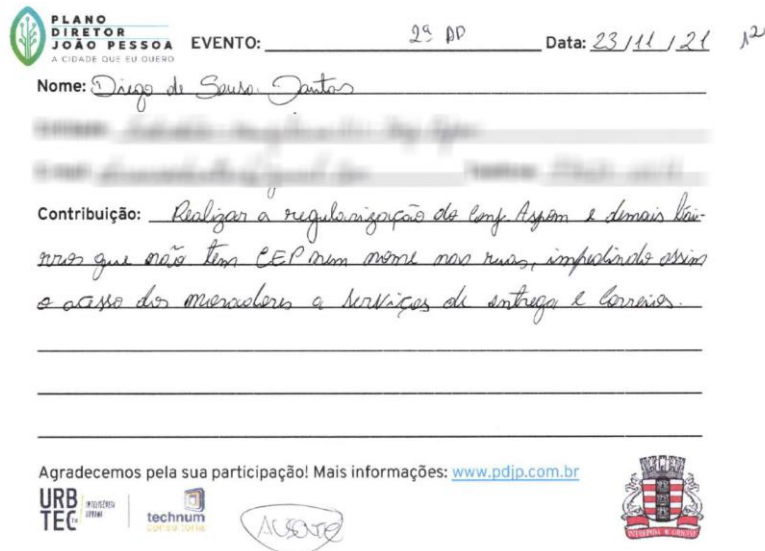 PLANO
DIRETOR
JOÃO PESSOA
A CIDADE QUE EU QUERO
EVENTO: 2ª AP Data: 23/11/21
Nome: Diego de Sousa Santos
Contribuição: Realizar a regularização do Conj. Aspom e demais bair-
rros que não tem CEP nem nome nas ruas, impedindo assim
o acesso dos moradores a serviços de entrega e Correios.
Agradecemos pela sua participação! Mais informações: www.pdjp.com.br
URB
TEC TM INTELIGÊNCIA
URBANA
technum
consultoria
AUSENTE
INTREPIDA AB ORIGINE